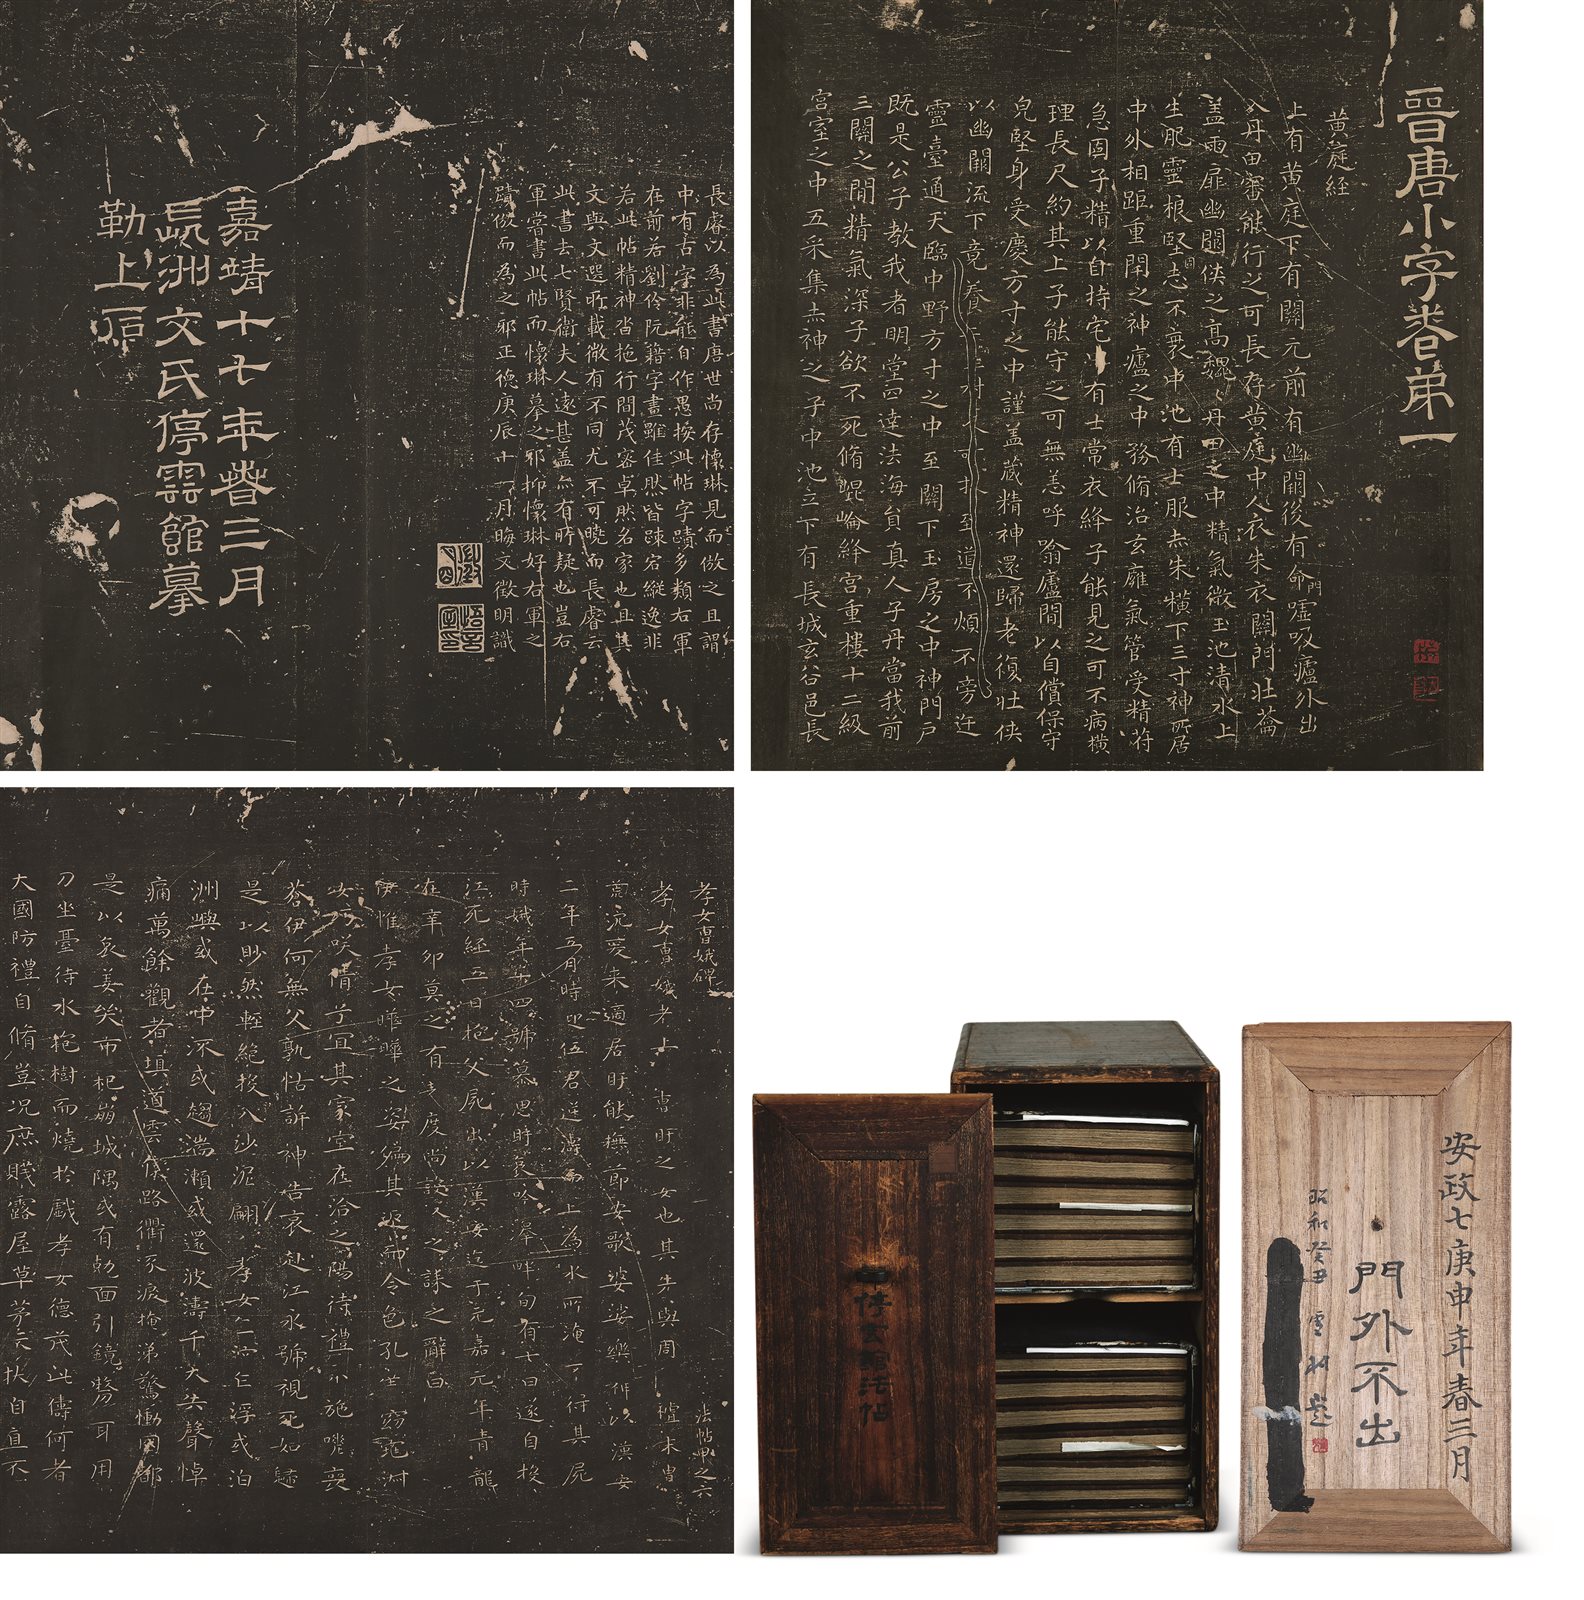 晉唐小字卷弟一
黄庭經
上有黄庭下有關元前有幽闕後有命門噓吸廬外出
入丹田審能行之可長存黄庭中人衣朱衣關門壯籥
盖兩扉幽闕俠之髙巍巍丹田之中精氣微玉池清水上
生肥靈根堅志不衰中池有士服赤朱橫下三寸神所居
中外相距重閉之神廬之中務脩治玄廱氣管受精符
急固子精以自持宅中有士常衣絳子能見之可不病橫
理長尺約其上子能守之可無恙呼噏廬間以自償保守
皃堅身受慶方寸之中謹盖藏精神還歸老復壯俠
以幽闕流下竟養至道不煩不旁迕
靈臺通天臨中野方寸之中至關下玉房之中神門戶
既是公子教我者明堂四達法海貟真人子丹當我前
三關之間精氣深子欲不死脩崐崘絳宫重樓十二級
宫室之中五采集赤神之子中池立下有長城玄谷邑長
長睿以為此書唐世尚存懷琳見而倣之且謂
中有古字非能自作愚按此帖字蹟多類右軍
在前若劉伶阮籍字畫雖佳然皆踈宕縱逸非
若此帖精神沓拖行間茂密卓然名家也且其
文與文選所載微有不同尤不可曉而長睿云
此書去七賢衛夫人遠甚盖亦有所疑也豈右
軍嘗書此帖而懷琳摹之邪抑懷琳好右軍之
蹟倣而為之邪正德庚辰十一月晦文徵明識
嘉靖十七年春三月
長洲文氏停雲館摹
勒上石
孝女曹娥碑
法帖甲之六
孝女曹娥者上虞曹盱之女也其先與周同祖末胄
荒流爰来適居盱能撫節安歌婆娑樂神以漢安
二年五月時迎伍君逆濤而上為水所淹不得其屍
時娥年十四號慕思盱哀吟澤畔旬有七日遂自投
江死經五日抱父屍出以漢安迄于元嘉元年青龍
在辛卯莫之有表度尚設祭之誄之辭曰
伊惟孝女曄曄之姿偏其返而令色孔儀窈窕淑
女巧笑倩兮宜其家室在洽之陽待禮未施嗟喪
蒼伊何無父孰怙訴神告哀赴江永號視死如歸
是以眇然輕絶投入沙泥翩翩孝女乍沉乍浮或泊
洲嶼或在中流或趨湍瀨或還波濤千夫失聲悼
痛萬餘觀者填道雲集路衢流淚掩涕驚慟國都
是以哀姜哭市杞崩城隅或有尅面引鏡剺耳用
刀坐臺待水抱樹而燒於戲孝女德茂此儔何者
大國防禮自脩豈况庶賤露屋草茅不扶自直不
停雲館法帖
安政七庚申年春三月
門外不出
昭和癸丑雪村題